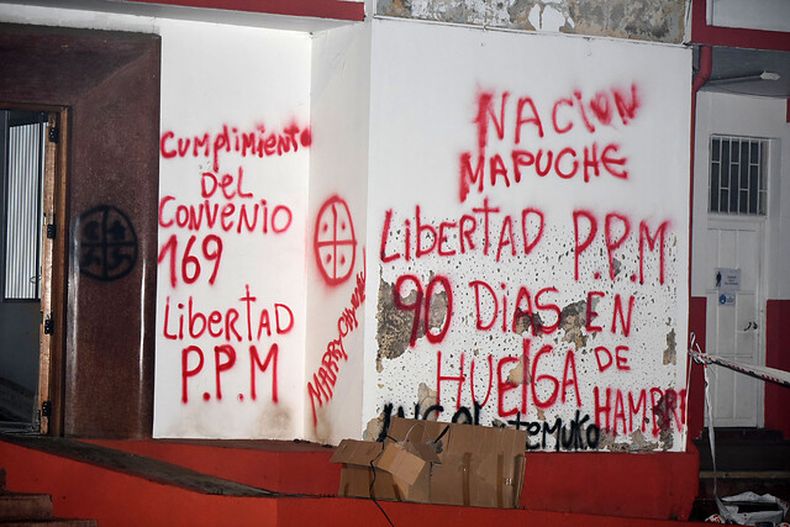 CUMPLIMIENTO
DEL
CONVENIO
169
LIBERTAD
P.P.M
MARRYCHIWEU
NACION
MAPUCHE
LIBERTAD P.P.M
90 DIAS EN
HUELGA DE
HAMBRE
TEMUKO